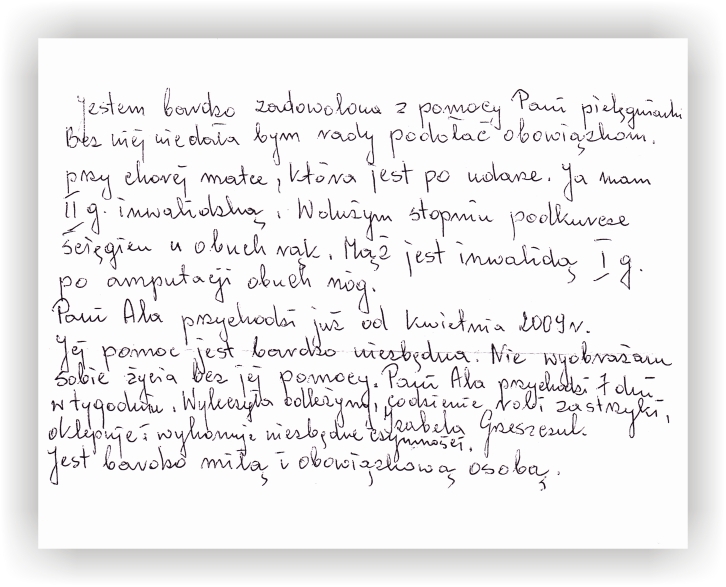 Jestem bardzo zadowolona z pomocy Pani pielęgniarki
Bez niej nie dała bym rady podołać obowiązkom.
przy chorej matce, która jest po udarze. Ja mam
II g. inwalidzką. W dużym stopniu podkurcze
ścięgien u obuch rąk. Mąż jest inwalidą I g.
po amputacji obuch nóg.
Pani Ala przychodzi już od kwietnia 2009r.
Jej pomoc jest bardzo niezbędna. Nie wyobrażam
sobie życia bez jej pomocy. Pani Ala przychodzi 7 dni
w tygodniu. Wyleczyła odleżyny, codzienie robi zastrzyki,
oklepuje i wykonuje niezbędne czynności. Izabela
Jest bardzo miłą i obowiązkową osobą.